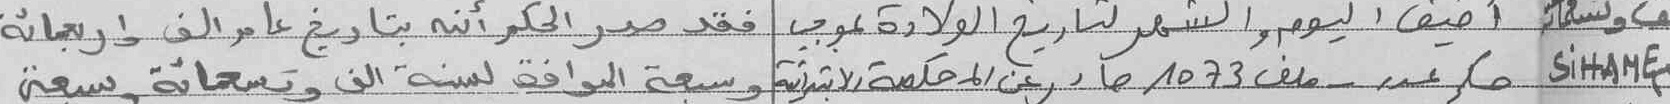 وتسعمائة أضيف اليوم والشهر لتاريخ الولادة بموجب فقد صدر الحكم أنه بتاريخ عام الف واربعمائة
SiHAME حكم عدد _ ملف 1073 صادر عن المحكمة الابتدائية وسبعة الموافق لسنة الف وتسعمائة وسبعة